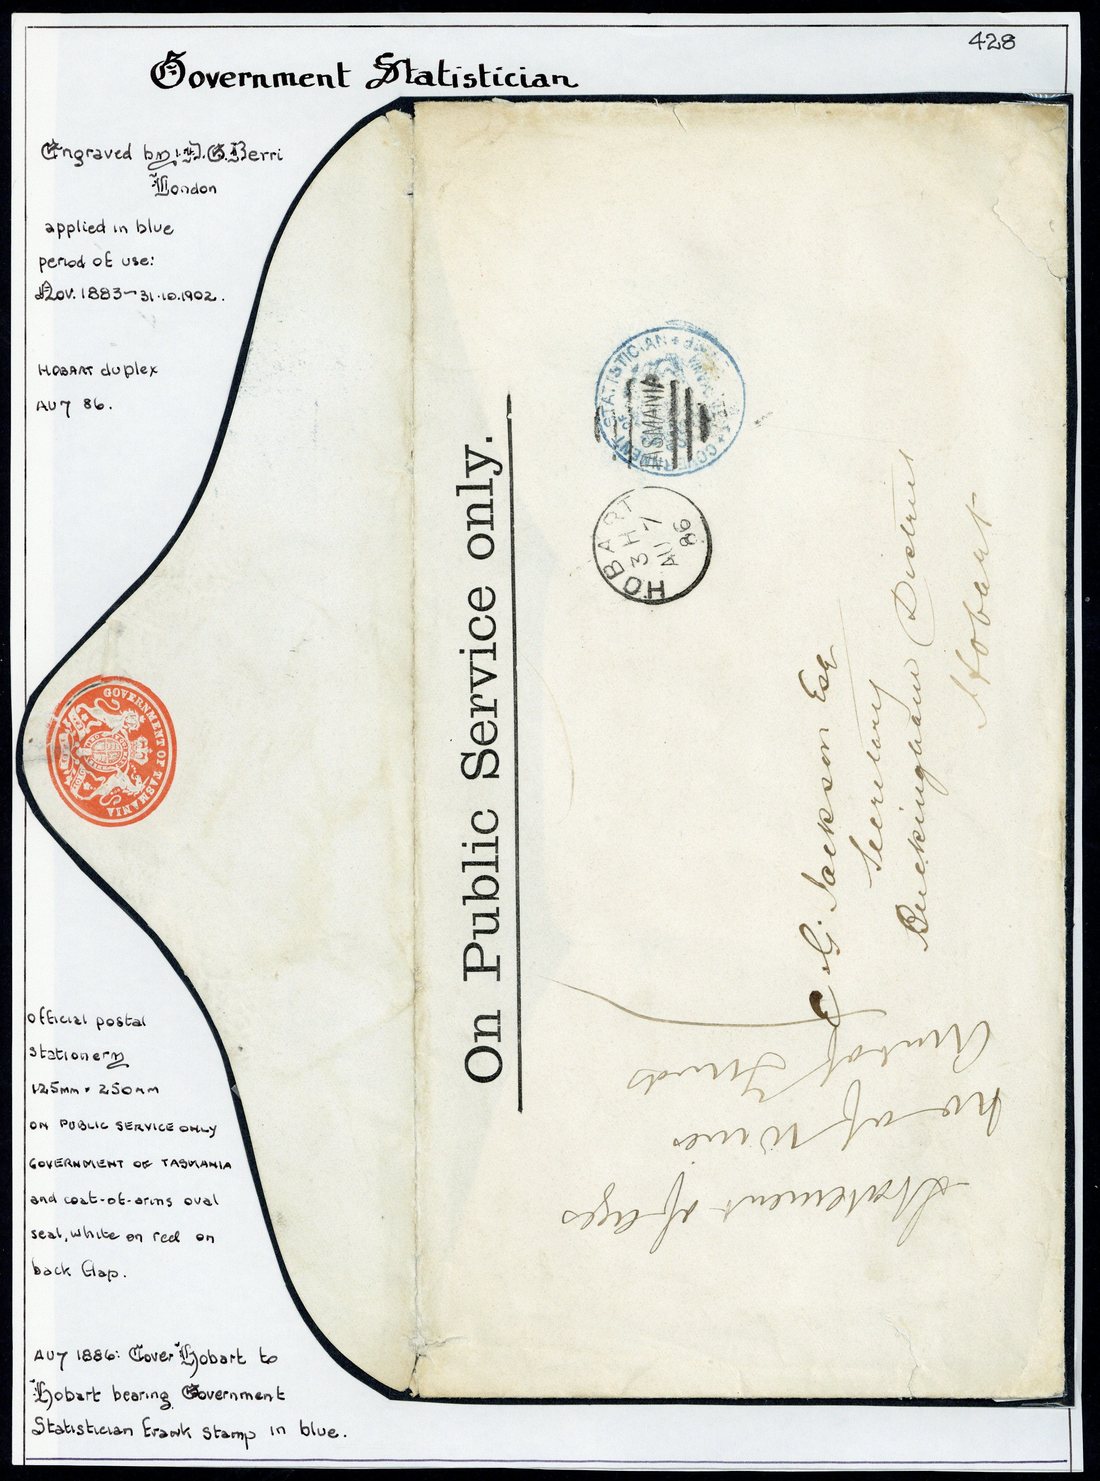 428
Government Statistician
Engraved by D.G. Berri
London
applied in blue
period of use:
Nov. 1883-31.10.1902.
HOBART duplex
AU 7 86.
official postal
stationery
125mm × 250mm
ON PUBLIC SERVICE ONLY
GOVERNMENT OF TASMANIA
and coat-of-arms oval
seal, white on red on
back flap.
AU 7 1886: Cover Hobart to
Hobart bearing Government
Statistician frank stamp in blue.
GOVERNMENT OF TASMANIA
On Public Service only.
GOVERNMENT STATISTICIAN
TASMANIA
HOBART
3 H
AU 7
86
C. G. Jackson Esq
Secretary
Buckingham District
Hobart
Statement of ages
no of Wives
Amt of Funds